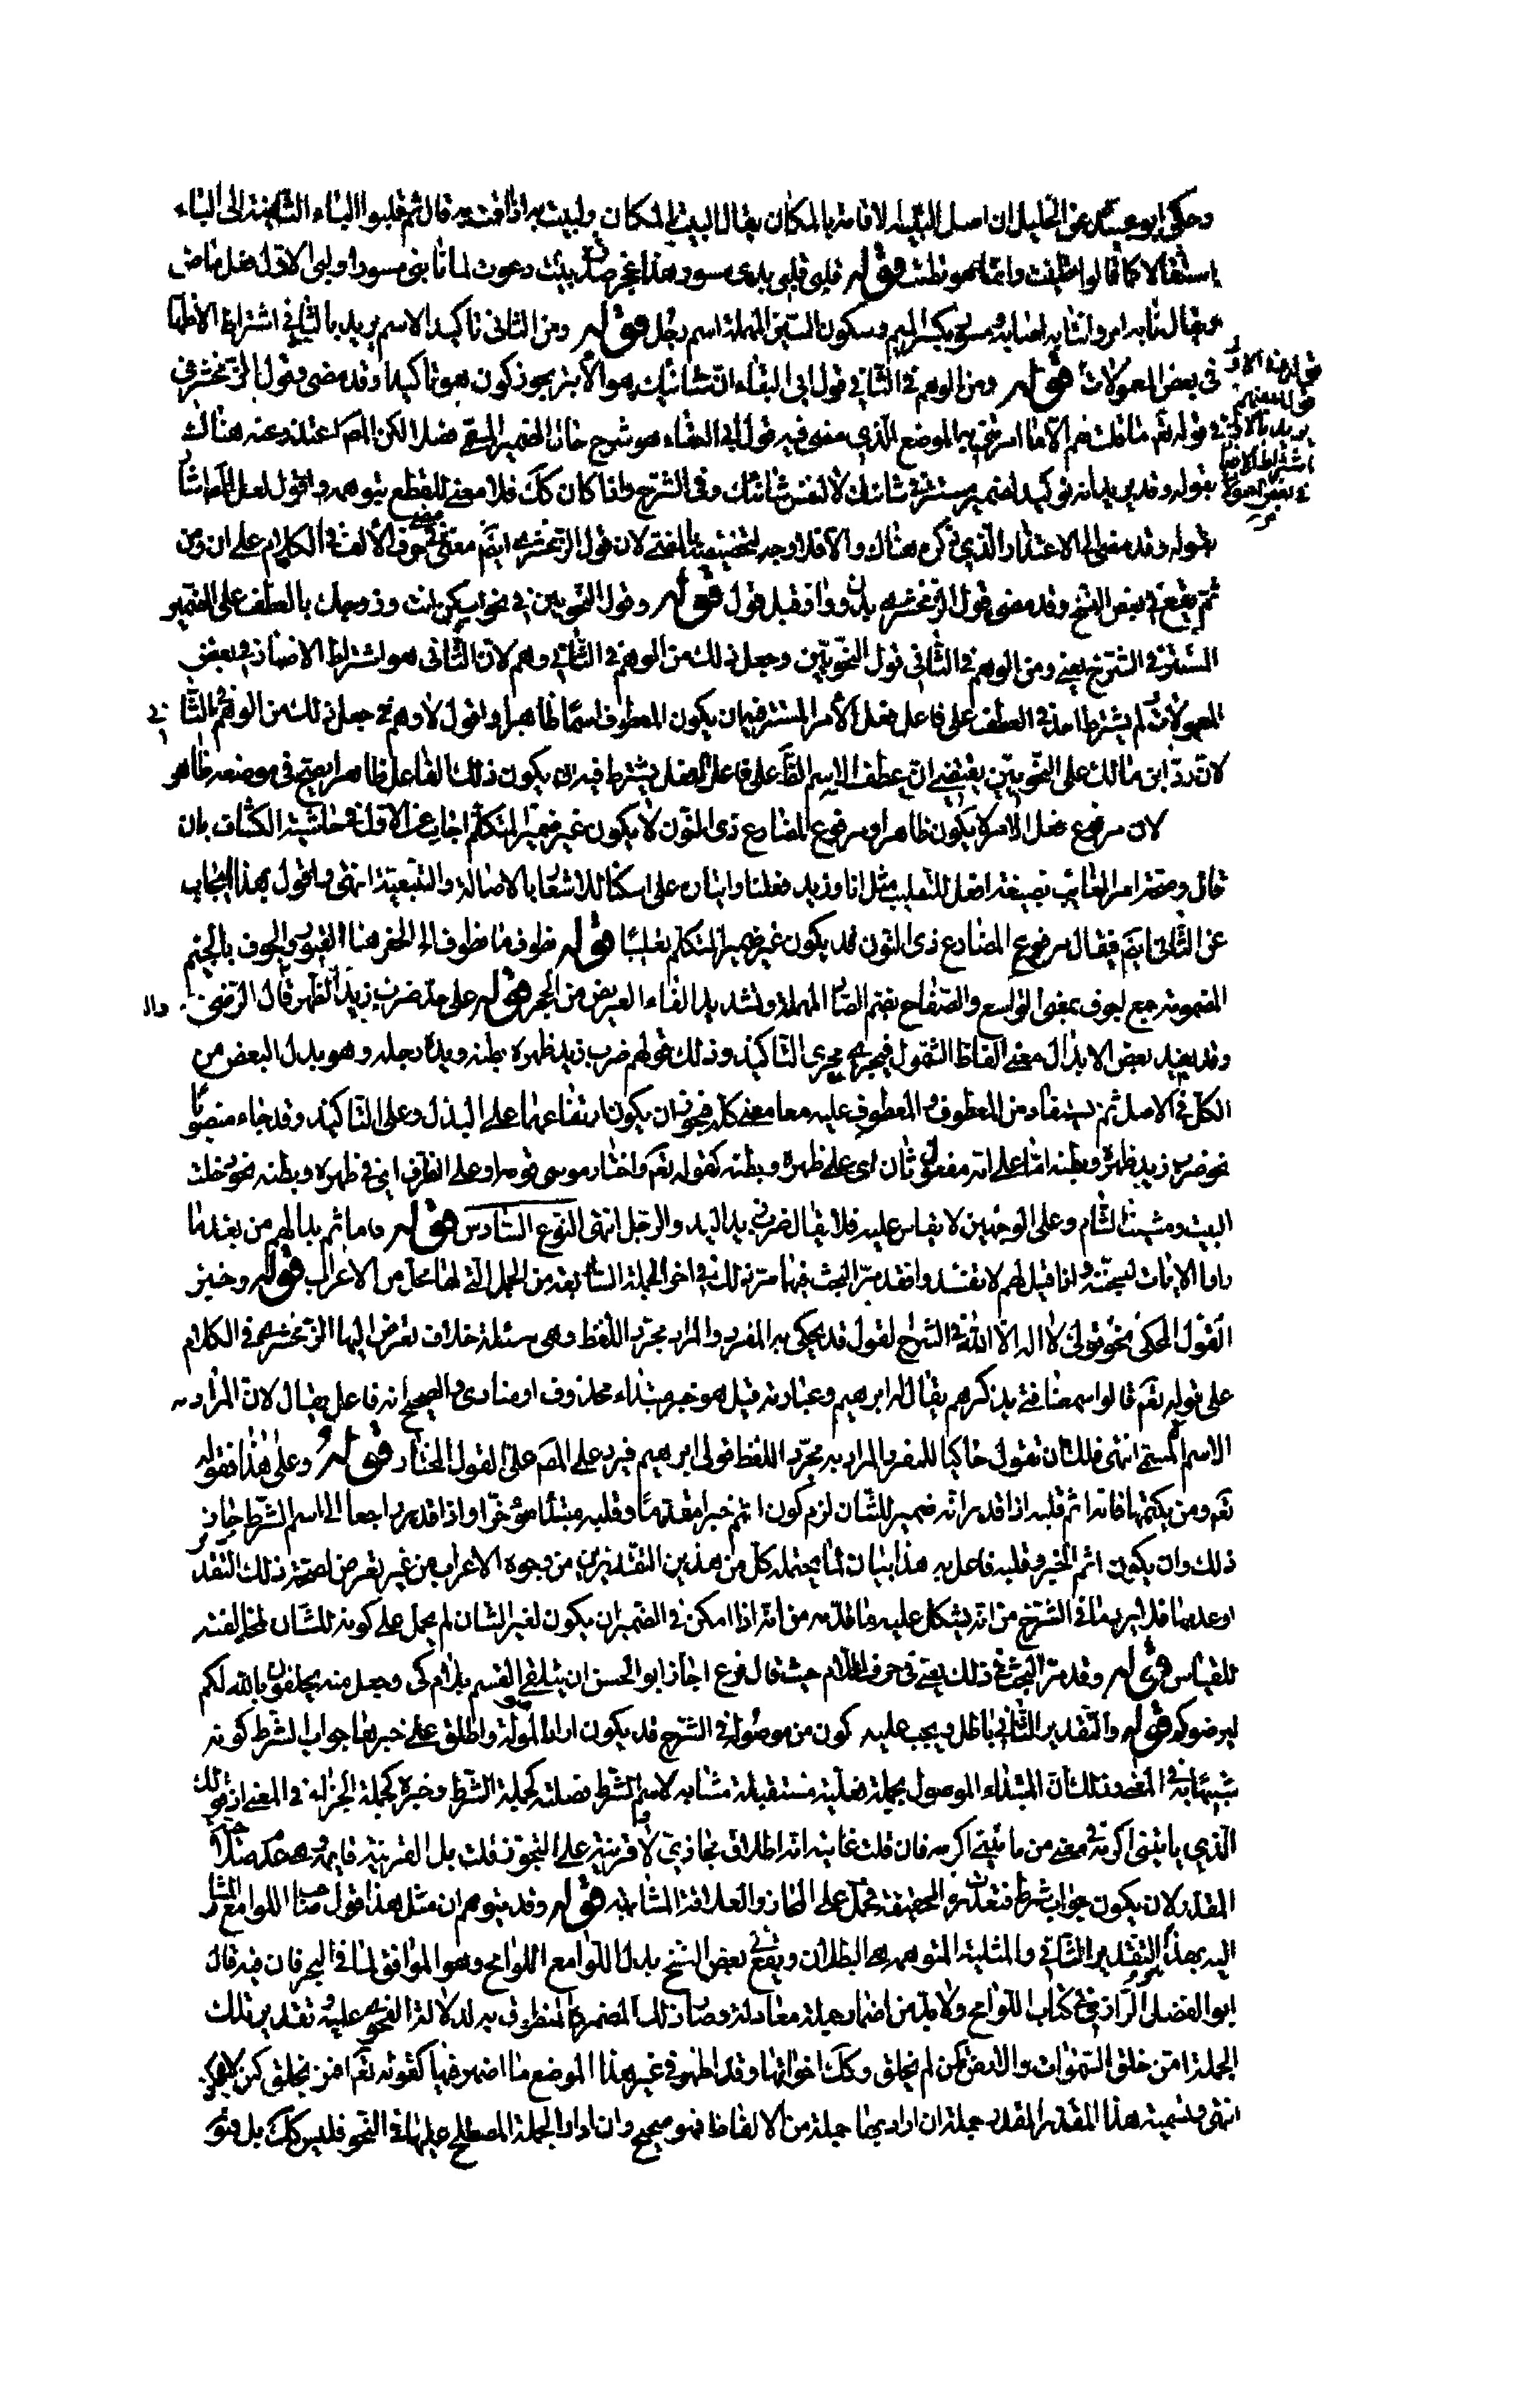 وحكى ابو عبيد عن الخليل ان اصل التلبية الاقامة بالمكان يقال البيت بالمكان ولبيت به اذا اقمت به قال ثم قلبوا الباء الثانية الى الياء
استثقالا كما قالوا تظنيت وانما هو تظننت قوله فلبى فلبى يدى مسور هذا عجز صدر بيت دعوت لما نابنى مسورا ولبى الاول فعل ماض
يقال نابه امر وانتابه اصابه ومسور بكسر الميم وسكون السين المهملة اسم رجل قوله ومن الثانى تاكيد الاسم يريد بالثانى اشتراط الاظهار
فى بعض المعمولات قوله ومن الوهم فى الثانى قول ابى البقاء ان شانئك هو الابتر يجوز كون هو تاكيدا وقد مضى وقول الزمخشرى
فى قوله تعم ما قلت لهم الا ما امرتنى به الموضع الذى مضى فيه قول ابى البقاء هو شرح حال الضمير المسمى فصلا لكن المص اعتذر عنه هنالك
بقوله وقد يريد انه توكيد لضمير مستتر فى شانئك لا لنفس شانئك وفى الشرح واذا كان كك فلا معنى للقطع بتوهمه واقول لعل المص اشار
بقوله وقد مضى الى الاعتذار الذى ذكره هناك والا فلا وجه لتخصيصه بالمضى لان قول الزمخشرى ايضم مضى فى حرف الالف فى الكلام على ان ومن
ثم يقع فى بعض النسخ وقد مضى قول الزمخشرى بدون واو قبل قول قوله وقول النحويين فى نحو اسكن انت وزوجك بالعطف على الضمير
المستتر فى الشرح يعنى ومن الوهم فى الثانى قول النحويين وجعل ذلك من الوهم فى الثانى وهم لان الثانى هو اشتراط الاضمار فى بعض
المعمولات ولم يشترط احد فى العطف على فاعل فعل الامر المستتر فيه ان يكون المعطوف اسما ظاهرا واقول لا وهم فى جعل ذلك من الوهم فى الثانى
لان رد ابن مالك على النحويين يقتضى ان عطف الاسم الظاهر على فاعل الفعل يشترط فيه ان يكون ذلك الفاعل ظاهرا يصح فى موضعه ظاهر
لان مرفوع فعل الامر لا يكون ظاهرا ومرفوع المضارع ذى النون لا يكون غير ضمير المتكلم اجاب عن الاول فى حاشية الكشاف بان
قال وصحة امر الغائب بصيغة افعل للتغليب مثل انا وزيد فعلنا وايثاره على اسكنا للاشعار بالاصالة والتبعية انتهى واقول بهذا يجاب
عن الثانى ايضم فيقال مرفوع المضارع ذى النون قد يكون غير ضمير المتكلم تغليبا قوله نطوف ما نطوف الى الحفر هنا القبور والجوف بالجيم
المضمومة جمع اجوف بمعنى الواسع والصفاح بضم الصاد المهملة وتشديد الفاء العريض من الحجر قوله على حد ضرب زيد الظهر قال الرضى
وقد يفيد بعض الابدال معنى الفاظ الشمول فيجرى مجرى التاكيد وذلك نحو لهم ضرب زيد ظهره وبطنه ويده ورجله وهو بدل البعض من
الكل فى الاصل ثم يستفاد من المعطوف والمعطوف عليه معا معنى كله فيجوز ان يكون ارتفاعهما على البدل وعلى التاكيد وقد جاء منصوبا
نحو ضرب زيد ظهره وبطنه اما على انه مفعول ثان اى على ظهره وبطنه كقوله تعم واختار موسى قومه او على الظرف اى فى ظهره وبطنه نحو دخلت
البيت ومشيت الشام وعلى الوجهين لا يقاس عليه فلا يقال ضرب زيد اليد والرجل انتهى النوع السادس قوله واما ثم بدا لهم من بعد ما
راوا الايات ليسجننه واذا قيل لهم لا تفسدوا فقد مر البحث فيهما مر ذلك فى اخر الجملة السابعة من الجمل التى لها محل من الاعراب قوله وخبر
القول المحكى نحو قولى لا اله الا الله فى الشرح لقول قد يحكى به المفرد والمراد مجرد اللفظ وهى مسئلة خلاف تعرض اليها الزمخشرى فى الكلام
على قوله تعم قالوا سمعنا فتى يذكرهم يقال له ابرهيم وعبارته قيل هو خبر مبتداء محذوف او منادى والصحيح انه فاعل يقال لان المراد به
الاسم لا المسمى انتهى فلك ان تقول حاكيا للمفرد المراد به مجرد اللفظ قولى ابرهيم فيرد على المص على القول المختار قوله وعلى هذا فقوله
تعم ومن يكتمها فانه اثم قلبه اذا قدر انه ضمير للشان لزم كون اثم خبرا مقدما وقلبه مبتدا مؤخرا واذا قدر راجعا الى اسم الشرط جاز
ذلك وان يكون اثم الخبر وقلبه فاعل به هذا بيان لما يحتمله كل من هذين التقديرين من وجوه الاعراب من غير تعرض لصحة ذلك التقدير
او عدمها فلا يرد ما فى الشرح من انه يشكل عليه ما قدمه من انه اذا امكن فى الضمير ان يكون لغير الشان لم يحمل على كونه للشان لمخالفته
للقياس قوله وقد مر البحث فى ذلك يعنى فى حرف اللام حيث قال فرع اجاز ابو الحسن ان يتلقى القسم بلام كى وجعل منه يحلفون بالله لكم
ليرضوكم قوله والتقدير الثانى باطل يجب عليه كون من موصولة فى الشرح قد يكون اراد الموصولة واطلق على خبرها جواب الشرط كونه
شبيها به فى المعنى وذلك ان المبتداء الموصول بجملة فعلية مستقبلة مشابه لاسم الشرط فصلته كجملة الشرط وخبره كجملة الجزاء فى المعنى اذ قولك
الذى ياتينى اكرمه فى معنى من ياتينى اكرمه فان قلت غايته انه اطلاق مجازى ولا قرينة على التجوز قلت بل القرينة قائمة وهى عدم صلاحية
المقدر لان يكون جواب شرط فتعذرت الحقيقة فحمل على المجاز والعلاقة المشابهة قوله وقد يتوهم ان مثل هذا قول صاحب اللوامع المشار
اليه بهذا التقدير الثانى والمثلية المتوهمة هى البطلان ويقع فى بعض النسخ بدل اللوامع اللوائح وهو الموافق لما فى البحر فان فيه قال
ابو الفضل الرازى فى كتاب اللوائح ولا بد من اضمار جملة معادلة وصار ذلك المضمر كالمنطوق به لدلالة الفحوى عليه وتقدير تلك
الجملة امن خلق السموات والارض كمن لم يخلق وكك اخواتها وقد اظهر فى غير هذا الموضع ما اضمر فيها كقوله تعم افمن يخلق كمن لا يخلق
انتهى وتسمية هذا المقدر المقدر جملة ان اراد بها جملة من الالفاظ فهو صحيح وان اراد الجملة المصطلح عليها فى النحو فليس كك بل هو